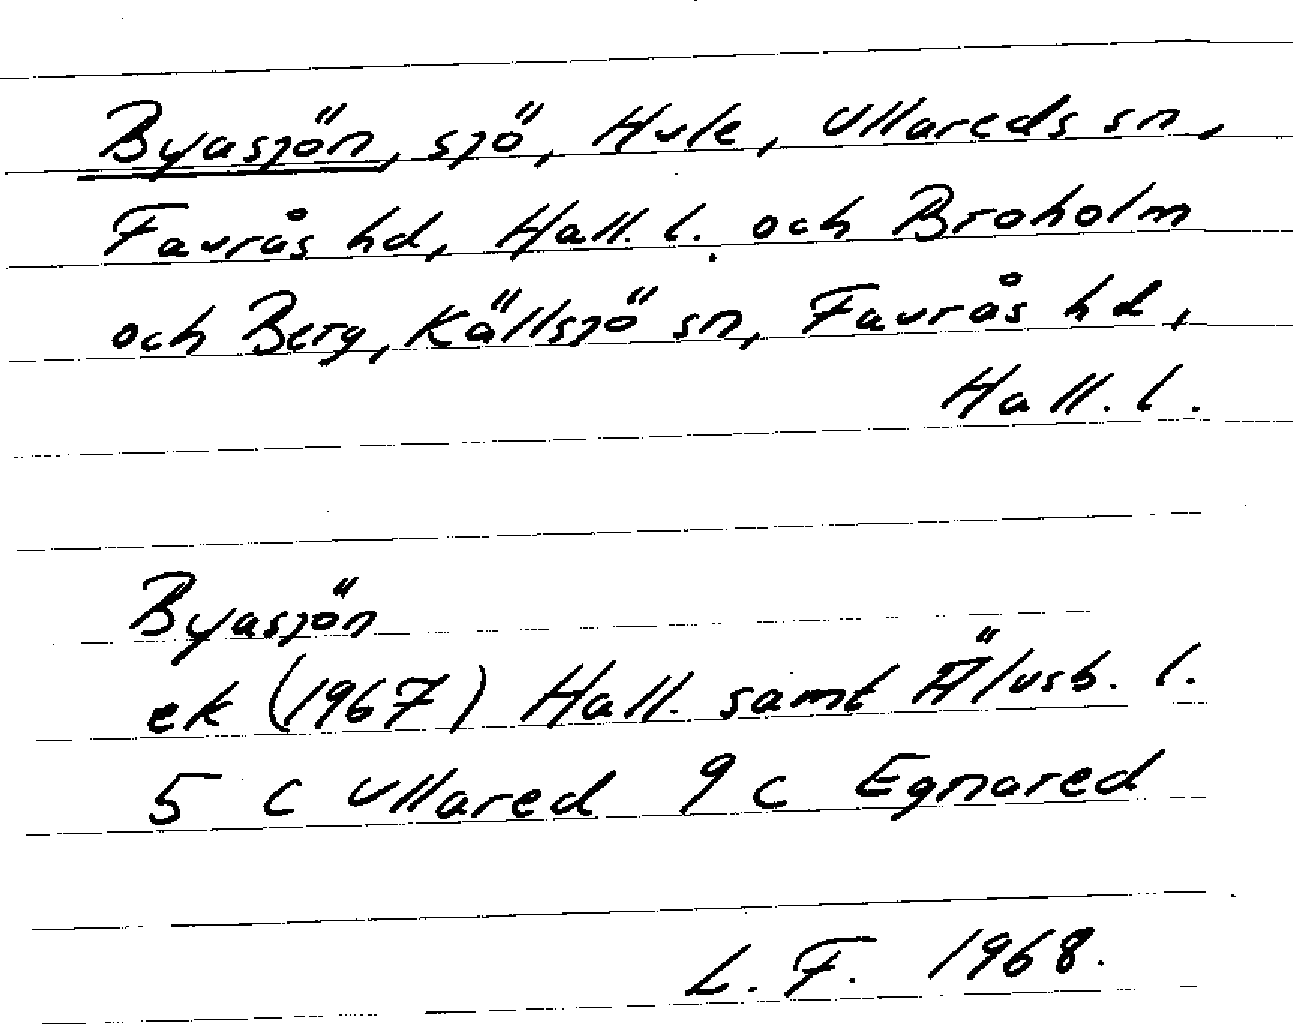 Byasjön, sjö, Hule, Ullareds sn,
Faurås hd, Hall. l. och Broholm
och Berg, Källsjö sn, Faurås hd,
Hall. l.
Byasjön
ek (1967) Hall. samt Älvsb. l.
5 C Ullared 9 c Egnared
L. F. 1968.